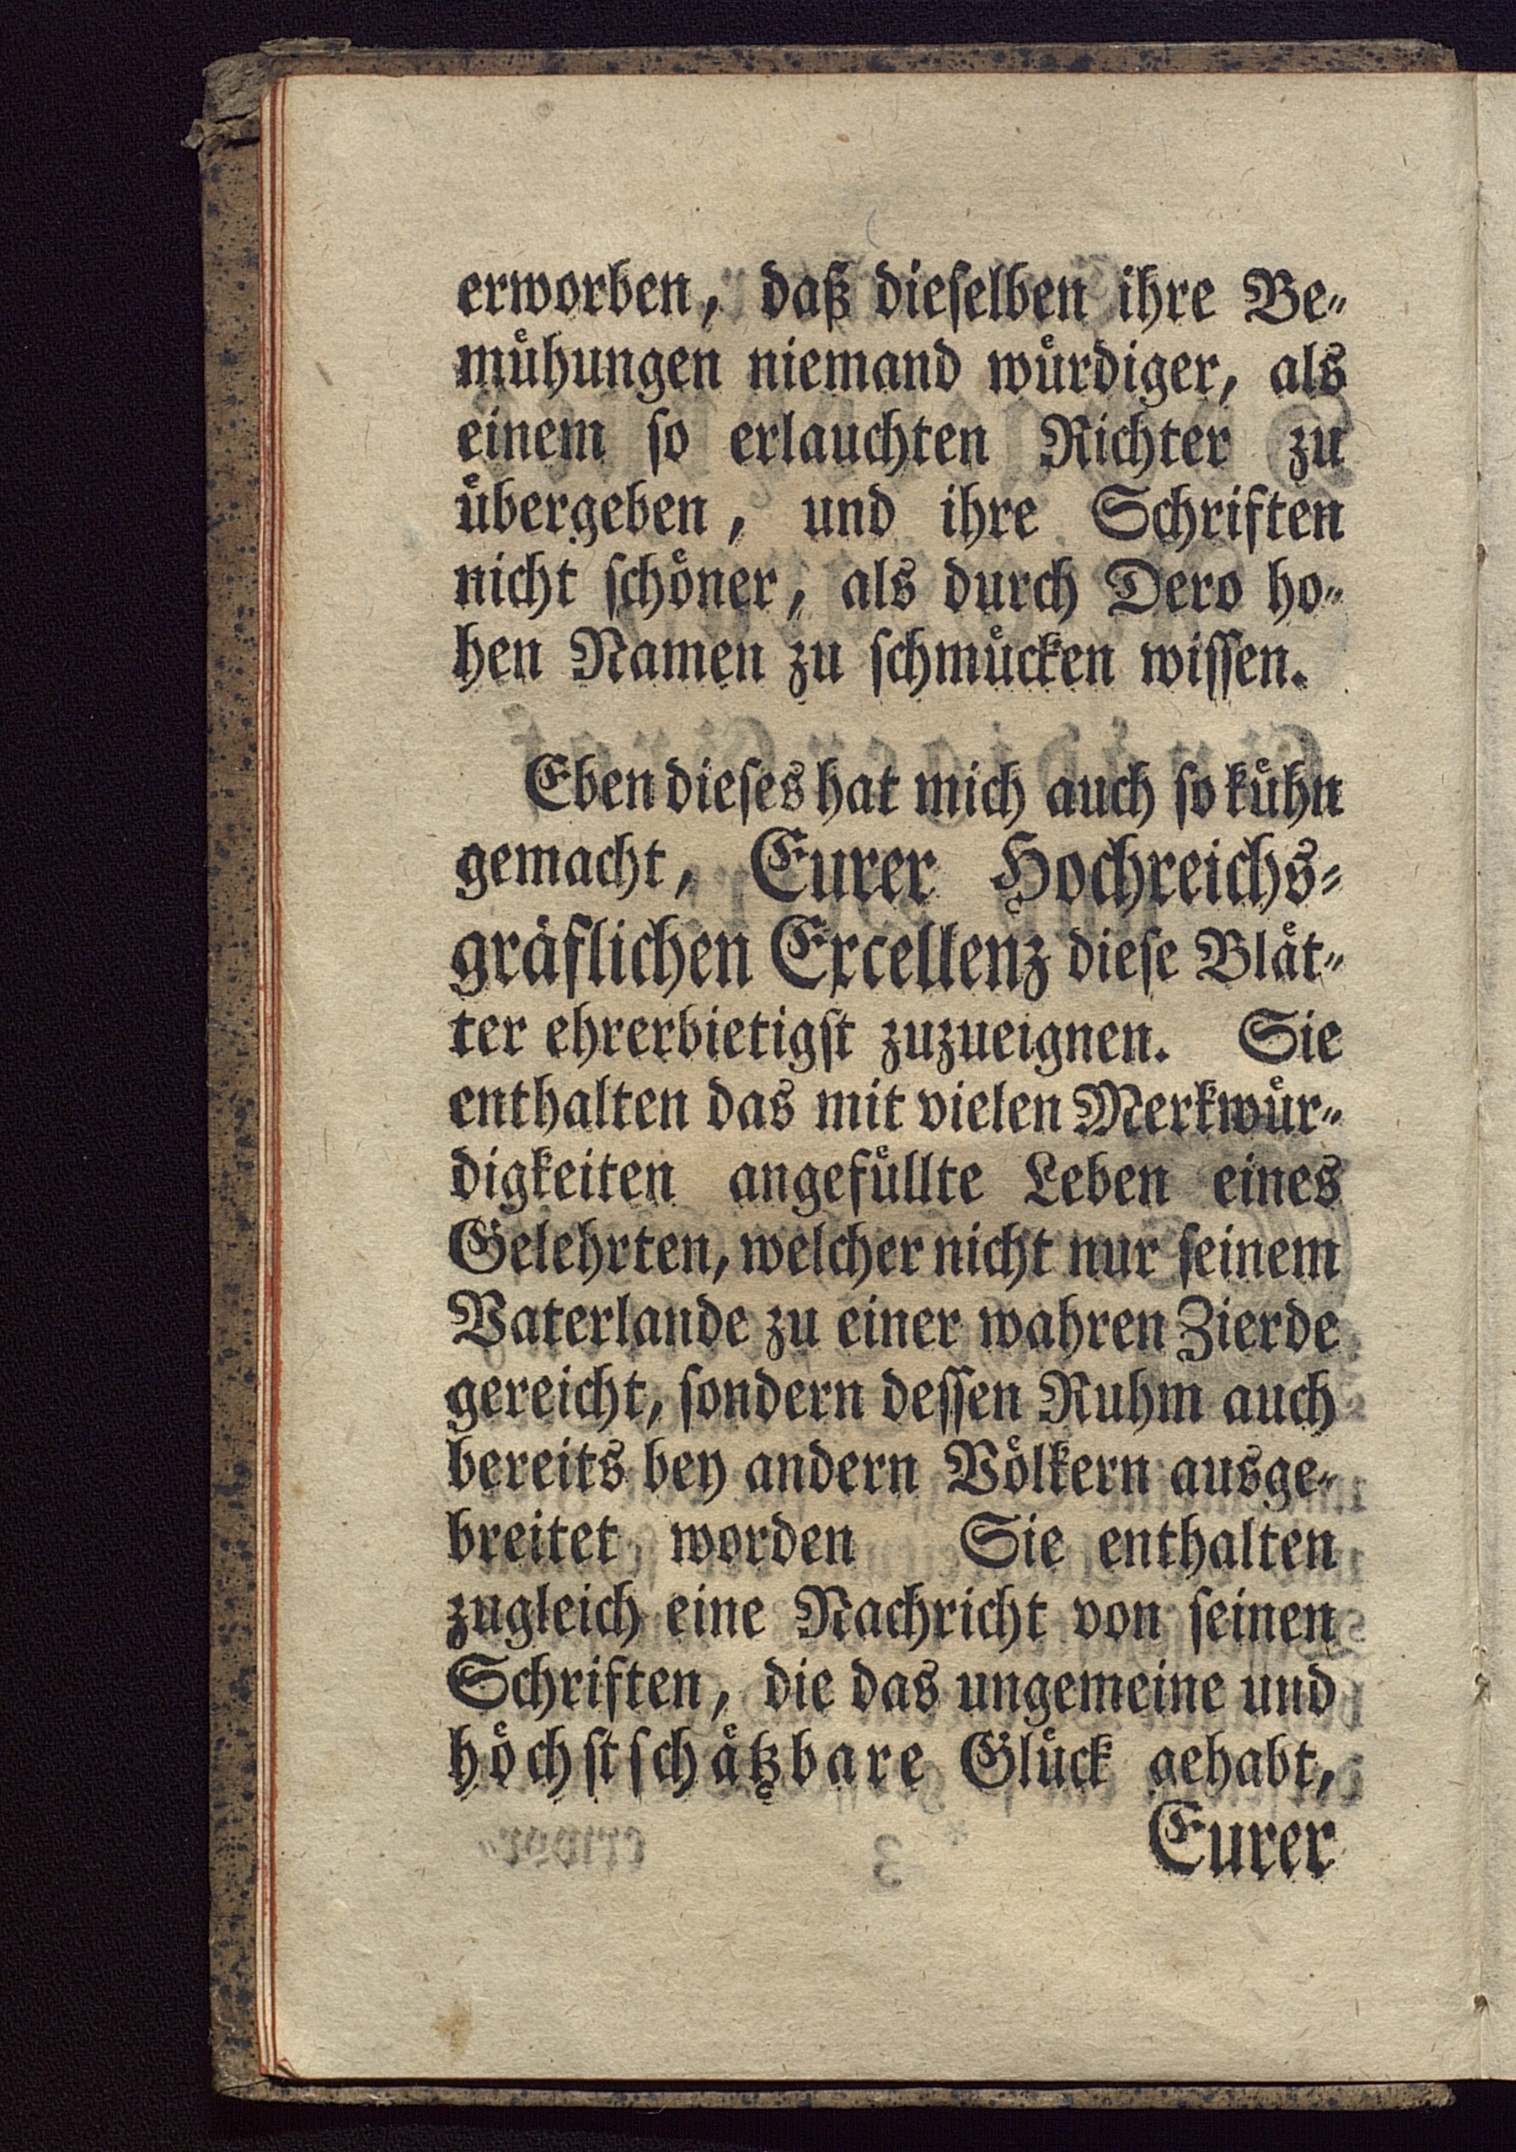 erworben, daß dieſelben ihre Be⸗
mühungen niemand würdiger, als
einem ſo erlauchten Richter zu
übergeben, und ihre Schriften
nicht ſchöner, als durch Dero ho⸗
hen Namen zu ſchmücken wiſſen.
Eben dieſes hat mich auch ſo kühn
gemacht, Eurer Hochreichs⸗
gräflichen Excellenz dieſe Blät⸗
ter ehrerbietigſt zuzueignen. Sie
enthalten das mit vielen Merkwür⸗
digkeiten angefüllte Leben eines
Gelehrten, welcher nicht nur ſeinem
Vaterlande zu einer wahren Zierde
gereicht, ſondern deſſen Ruhm auch
bereits bey andern Völkern ausge⸗
breitet worden Sie enthalten
zugleich eine Nachricht von ſeinen
Schriften, die das ungemeine und
höchſtſchätzbare Glück gehabt,
Eurer